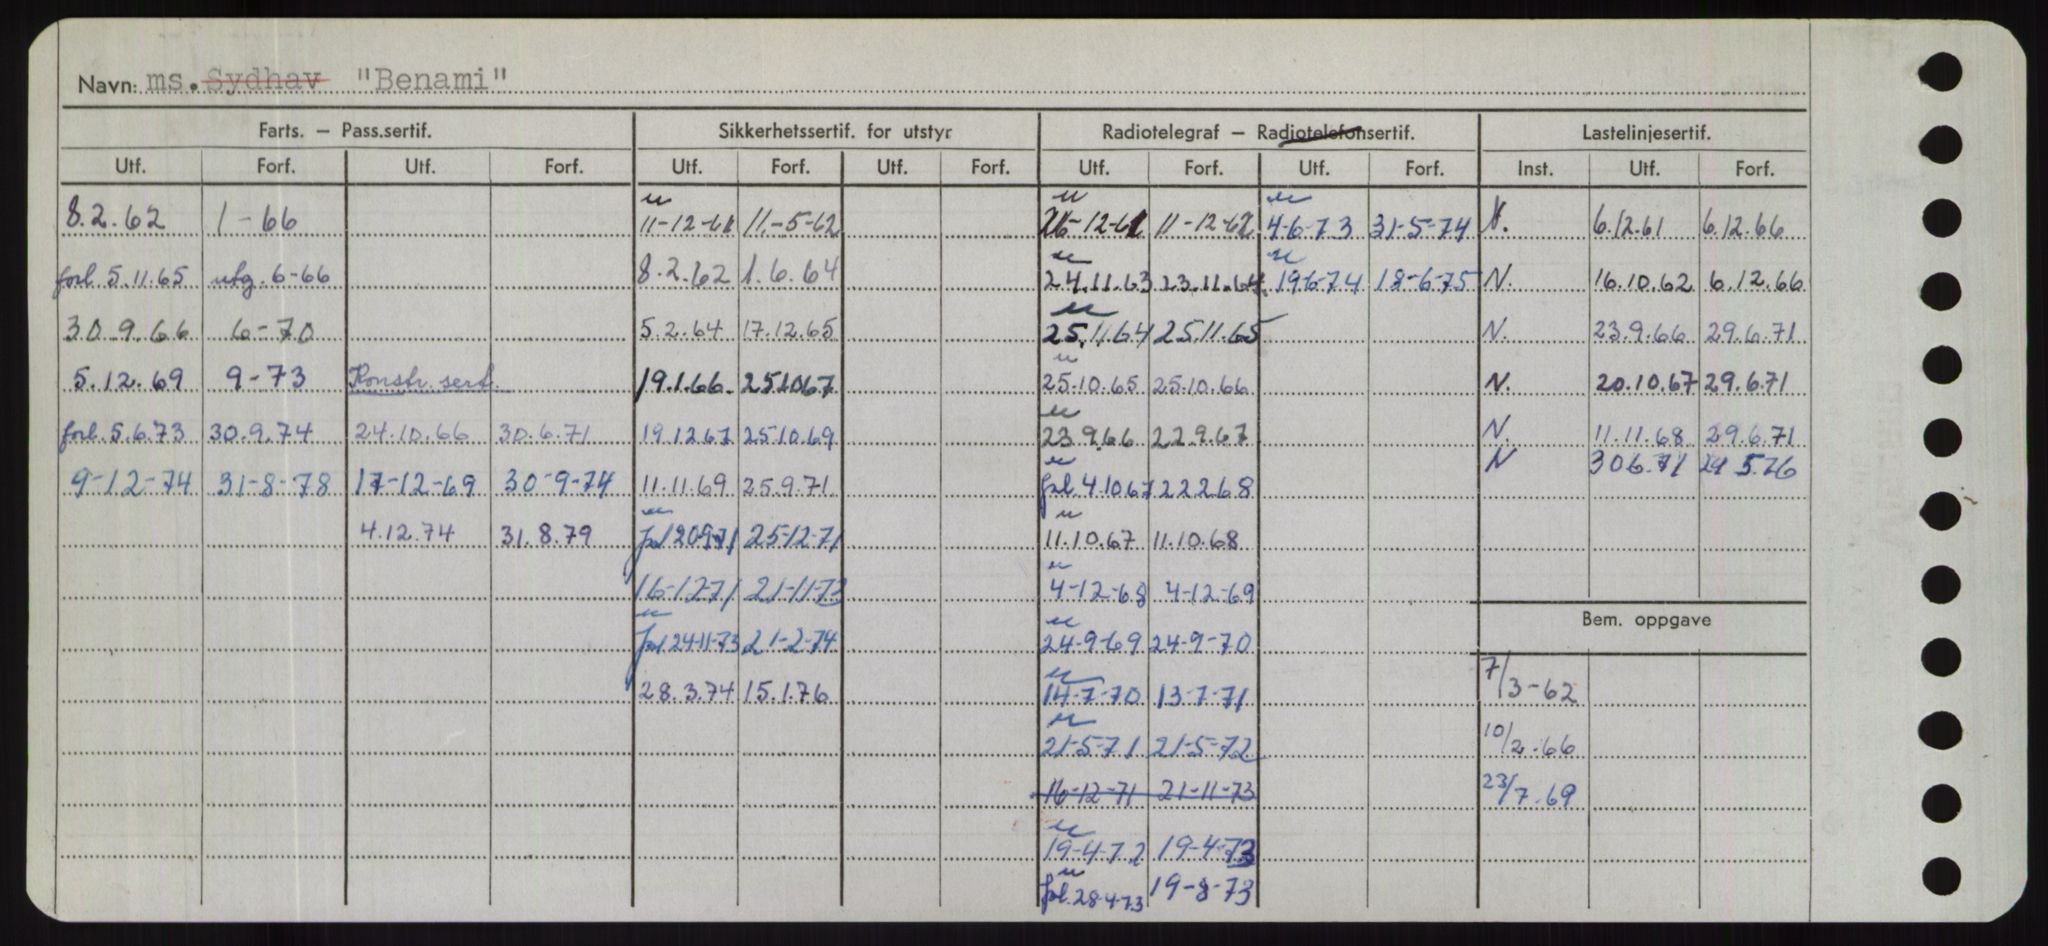 Navn: ms. Sydhav "Benami"
Farts. – Pass.sertif. Sikkerhetssertif. for utstyr Radiotelegraf – Radiotelefonsertif. Lastelinjesertif.
Utf. Forf. Utf. Forf. Utf. Forf. Utf. Forf. Utf. Forf. Utf. Forf. Inst. Utf. Forf.
8.2.62 1-66 11-12-61 11-5-62 11-12-62 4-6-73 31-5-74 N. 6.12.61 6.12.66
forl. 5.11.65 utg. 6-66 8.2.62 1.6.64 24.11.63 23.11.64 19-6-74 18-6-75 N. 16.10.62 6.12.66
30.9.66 6-70 5.2.64 17.12.65 25.11.64 25.11.65 N. 23.9.66 29.6.71
5.12.69 9-73 Konstr. sert. 19.1.66. 25.10.67 25.10.65 25.10.66 N. 20.10.67 29.6.71
forl. 5.6.73 30.9.74 24.10.66 30.6.71 19.12.67 25.10.69 23.9.66 22.9.67 N. 11.11.68 29.6.71
9-12-74 31-8-78 17-12-69 30-9-74 11.11.69 25.9.71 forl. 4.10.67 22.2.68 N 30.6.71 29.5.76
4.12.74 31.8.79 forl 20.9.71 25-12-71 11.10.67 11.10.68
16-12-71 21-11-73 4-12-68 4-12-69
Bem. oppgave
forl 24-11-73 21-2-74 24-9-69 24-9-70
28.3.74 15.1.76 14-7-70 13-7-71 7/3-62
21-5-71 21-5-72 10/2-66
16-12-71 21-11-73 23/7-69
19-4-72 19-4-73
forl. 28-4-73 19-8-73